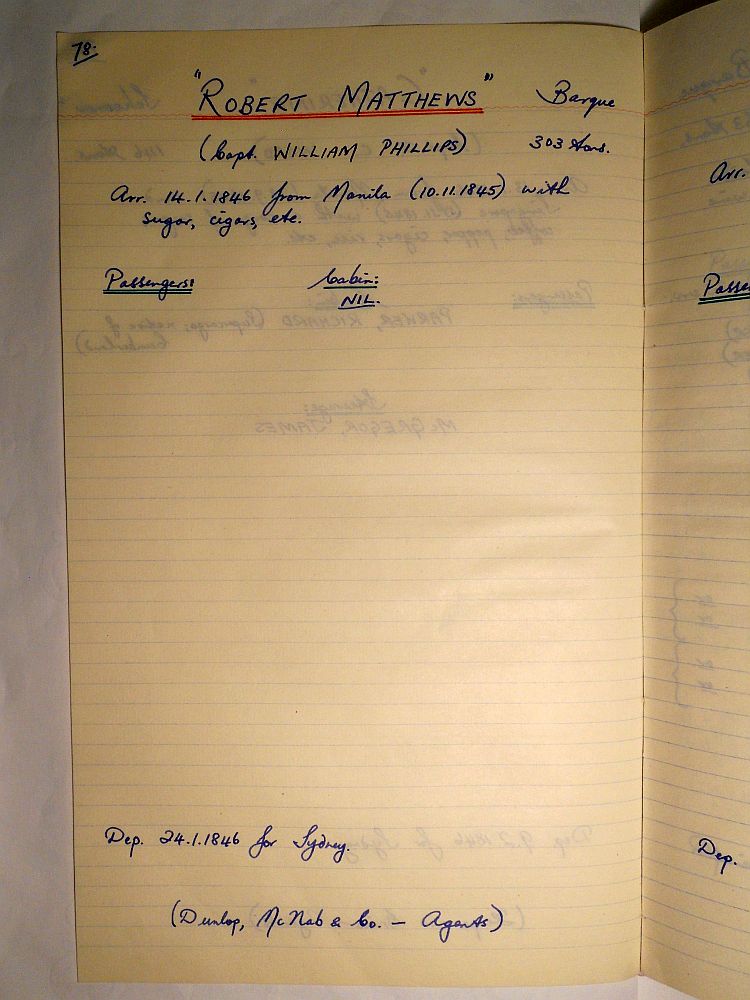 78.
"ROBERT MATTHEWS" Barque
(Capt. WILLIAM PHILLIPS) 303 tons.
Arr. 14.1.1846 from Manila (10.11.1845) with
sugar, cigars, etc.
Passengers: Cabin:
NIL.
Dep. 24.1.1846 for Sydney.
(Dunlop, McNab & Co. — Agents)
Arr.
Passe
Dep.